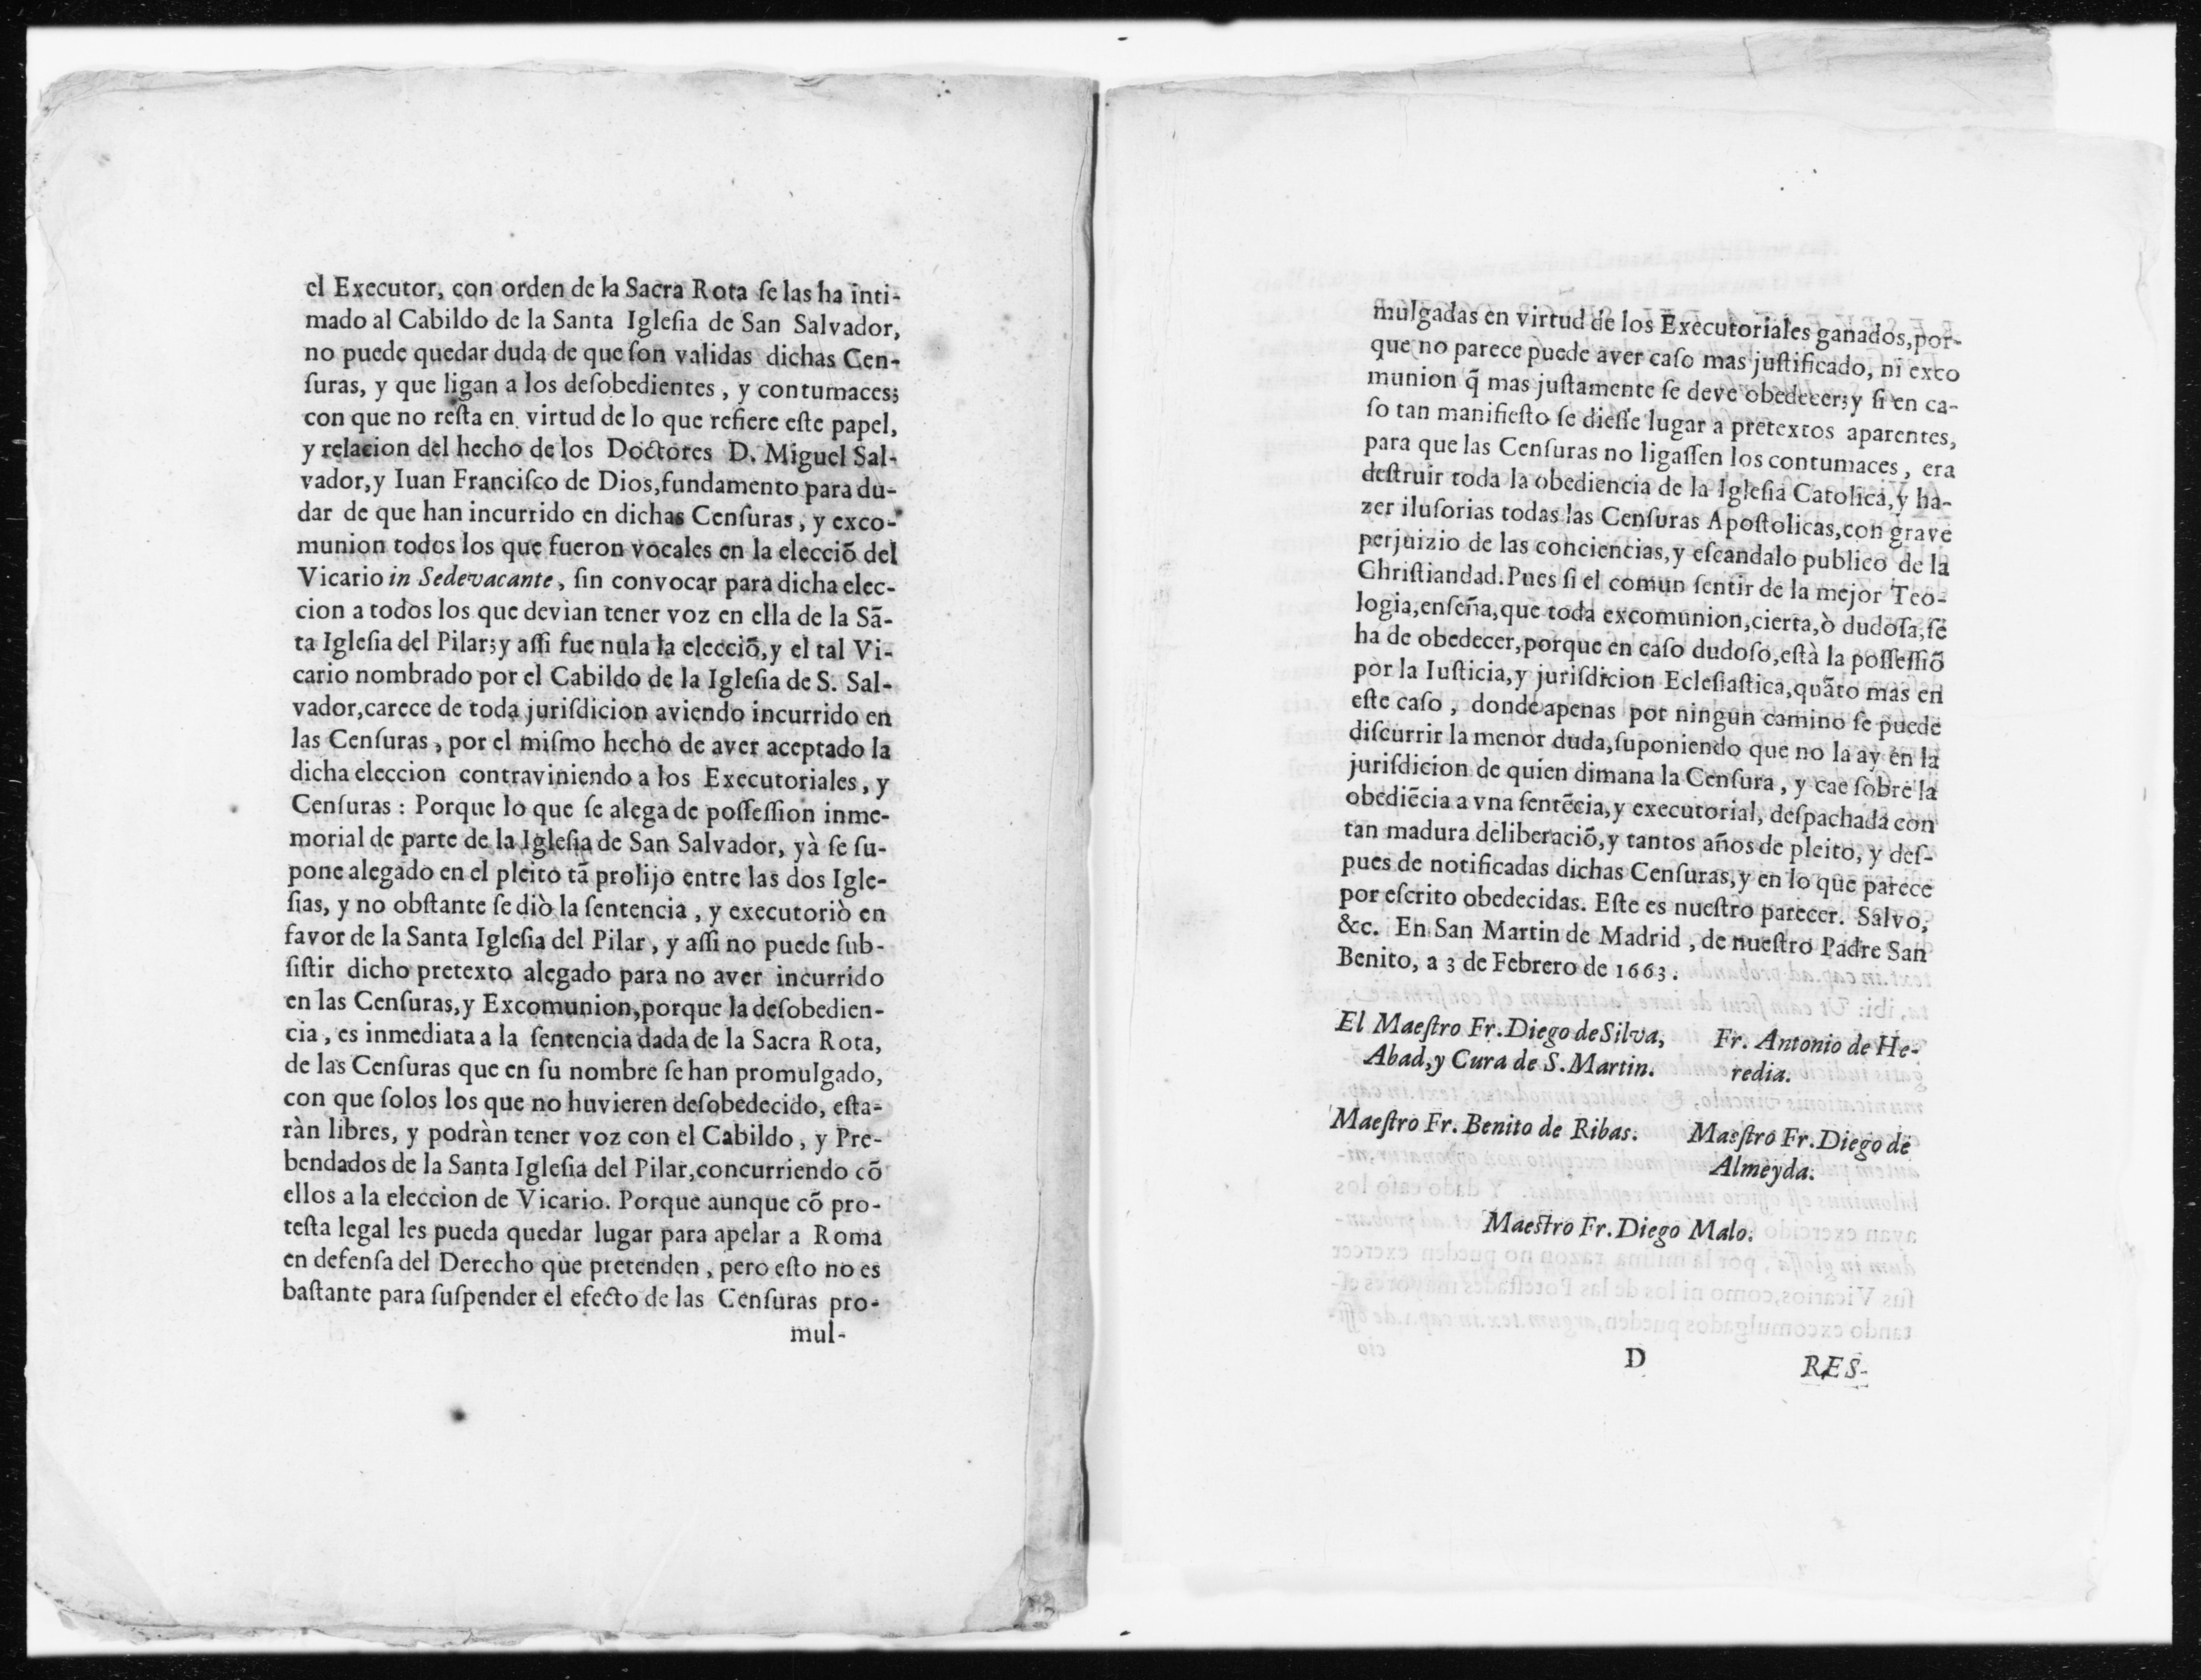 el Executor, con orden de la Sacra Rota ſe las ha inti-
mado al Cabildo de la Santa Igleſia de San Salvador,
no puede quedar duda de que ſon validas dichas Cen-
ſuras, y que ligan a los deſobedientes, y contumaces;
con que no reſta en virtud de lo que refiere eſte papel,
y relacion del hecho de los Doctores D. Miguel Sal-
vador, y Iuan Franciſco de Dios, fundamento para du-
dar de que han incurrido en dichas Cenſuras, y exco-
munion todos los que fueron vocales en la elecciõ del
Vicario in Sedevacante, ſin convocar para dicha elec-
cion a todos los que devian tener voz en ella de la Sã-
ta Igleſia del Pilar; y aſſi fue nula la elecciõ, y el tal Vi-
cario nombrado por el Cabildo de la Igleſia de S. Sal-
vador, carece de toda juriſdicion aviendo incurrido en
las Cenſuras, por el miſmo hecho de aver aceptado la
dicha eleccion contraviniendo a los Executoriales, y
Cenſuras: Porque lo que ſe alega de poſſeſſion inme-
morial de parte de la Igleſia de San Salvador, yà ſe ſu-
pone alegado en el pleito tã prolijo entre las dos Igle-
ſias, y no obſtante ſe diò la ſentencia, y executoriò en
favor de la Santa Igleſia del Pilar, y aſſi no puede ſub-
ſiſtir dicho pretexto alegado para no aver incurrido
en las Cenſuras, y Excomunion, porque la deſobedien-
cia, es inmediata a la ſentencia dada de la Sacra Rota,
de las Cenſuras que en ſu nombre ſe han promulgado,
con que ſolos los que no huvieren deſobedecido, eſta-
ràn libres, y podràn tener voz con el Cabildo, y Pre-
bendados de la Santa Igleſia del Pilar, concurriendo cõ
ellos a la eleccion de Vicario. Porque aunque cõ pro-
teſta legal les pueda quedar lugar para apelar a Roma
en defenſa del Derecho que pretenden, pero eſto no es
baſtante para ſuſpender el efecto de las Cenſuras pro-
mul-
mulgadas en virtud de los Executoriales ganados, por-
que no parece puede aver caſo mas juſtificado, ni exco
munion q̃ mas juſtamente ſe deve obedecer; y ſi en ca-
ſo tan manifieſto ſe dieſſe lugar a pretextos aparentes,
para que las Cenſuras no ligaſſen los contumaces, era
deſtruir toda la obediencia de la Igleſia Catolica, y ha-
zer iluſorias todas las Cenſuras Apoſtolicas, con grave
perjuizio de las conciencias, y eſcandalo publico de la
Chriſtiandad. Pues ſi el comun ſentir de la mejor Teo-
logia, enſeña, que toda excomunion, cierta, ò dudoſa, ſe
ha de obedecer, porque en caſo dudoſo, eſtà la poſſeſſiõ
por la Iuſticia, y juriſdicion Ecleſiaſtica, quãto mas en
eſte caſo, donde apenas por ningun camino ſe puede
diſcurrir la menor duda, ſuponiendo que no la ay en la
juriſdicion de quien dimana la Cenſura, y cae ſobre la
obediẽcia a vna ſentẽcia, y executorial, deſpachada con
tan madura deliberaciõ, y tantos años de pleito, y deſ-
pues de notificadas dichas Cenſuras, y en lo que parece
por eſcrito obedecidas. Eſte es nueſtro parecer. Salvo,
&c. En San Martin de Madrid, de nueſtro Padre San
Benito, a 3 de Febrero de 1663.
El Maeſtro Fr. Diego de Silva,
Abad, y Cura de S. Martin.
Fr. Antonio de He-
redia.
Maeſtro Fr. Benito de Ribas.
Maeſtro Fr. Diego de
Almeyda.
Maeſtro Fr. Diego Malo.
D
RES-